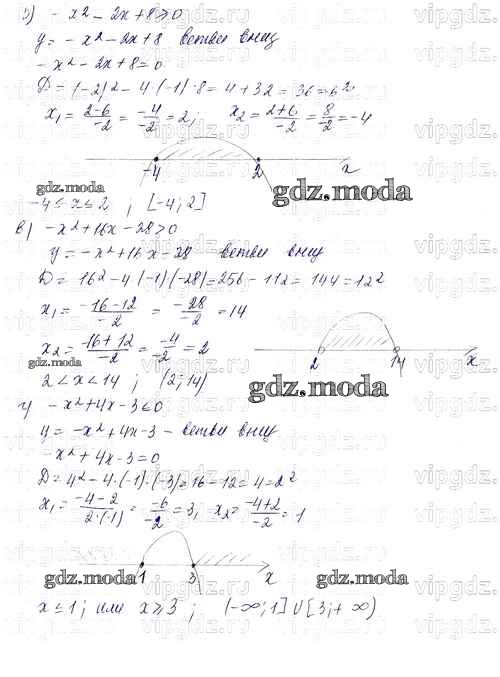 б) -x² - 2x + 8 ⩾ 0
y = -x² - 2x + 8 ветви вниз
-x² - 2x + 8 = 0
D = (-2)² - 4·(-1)·8 = 4 + 32 = 36 = 6²
x₁ = (2-6)/-2 = -4/-2 = 2, x₂ = (2+6)/-2 = 8/2 = -4
-4 2 x
gdz.moda
gdz.moda
-4 ≤ x ≤ 2 ; [-4; 2]
в) -x² + 16x - 28 > 0
y = -x² + 16x - 28 ветви вниз
D = 16² - 4·(-1)·(-28) = 256 - 112 = 144 = 12²
x₁ = (-16-12)/-2 = -28/-2 = 14
x₂ = (-16+12)/-2 = -4/-2 = 2
2 14 x
gdz.moda
gdz.moda
2 < x < 14 ; (2; 14)
г) -x² + 4x - 3 ≤ 0
y = -x² + 4x - 3 - ветви вниз
-x² + 4x - 3 = 0
D = 4² - 4·(-1)·(-3) = 16 - 12 = 4 = 2²
x₁ = (-4-2)/2·(-1) = -6/-2 = 3, x₂ = (-4+2)/-2 = 1
1 3 x
gdz.moda
gdz.moda
x ≤ 1; или x ⩾ 3 ; (-∞; 1] U [3; +∞)
vipgdz.ru